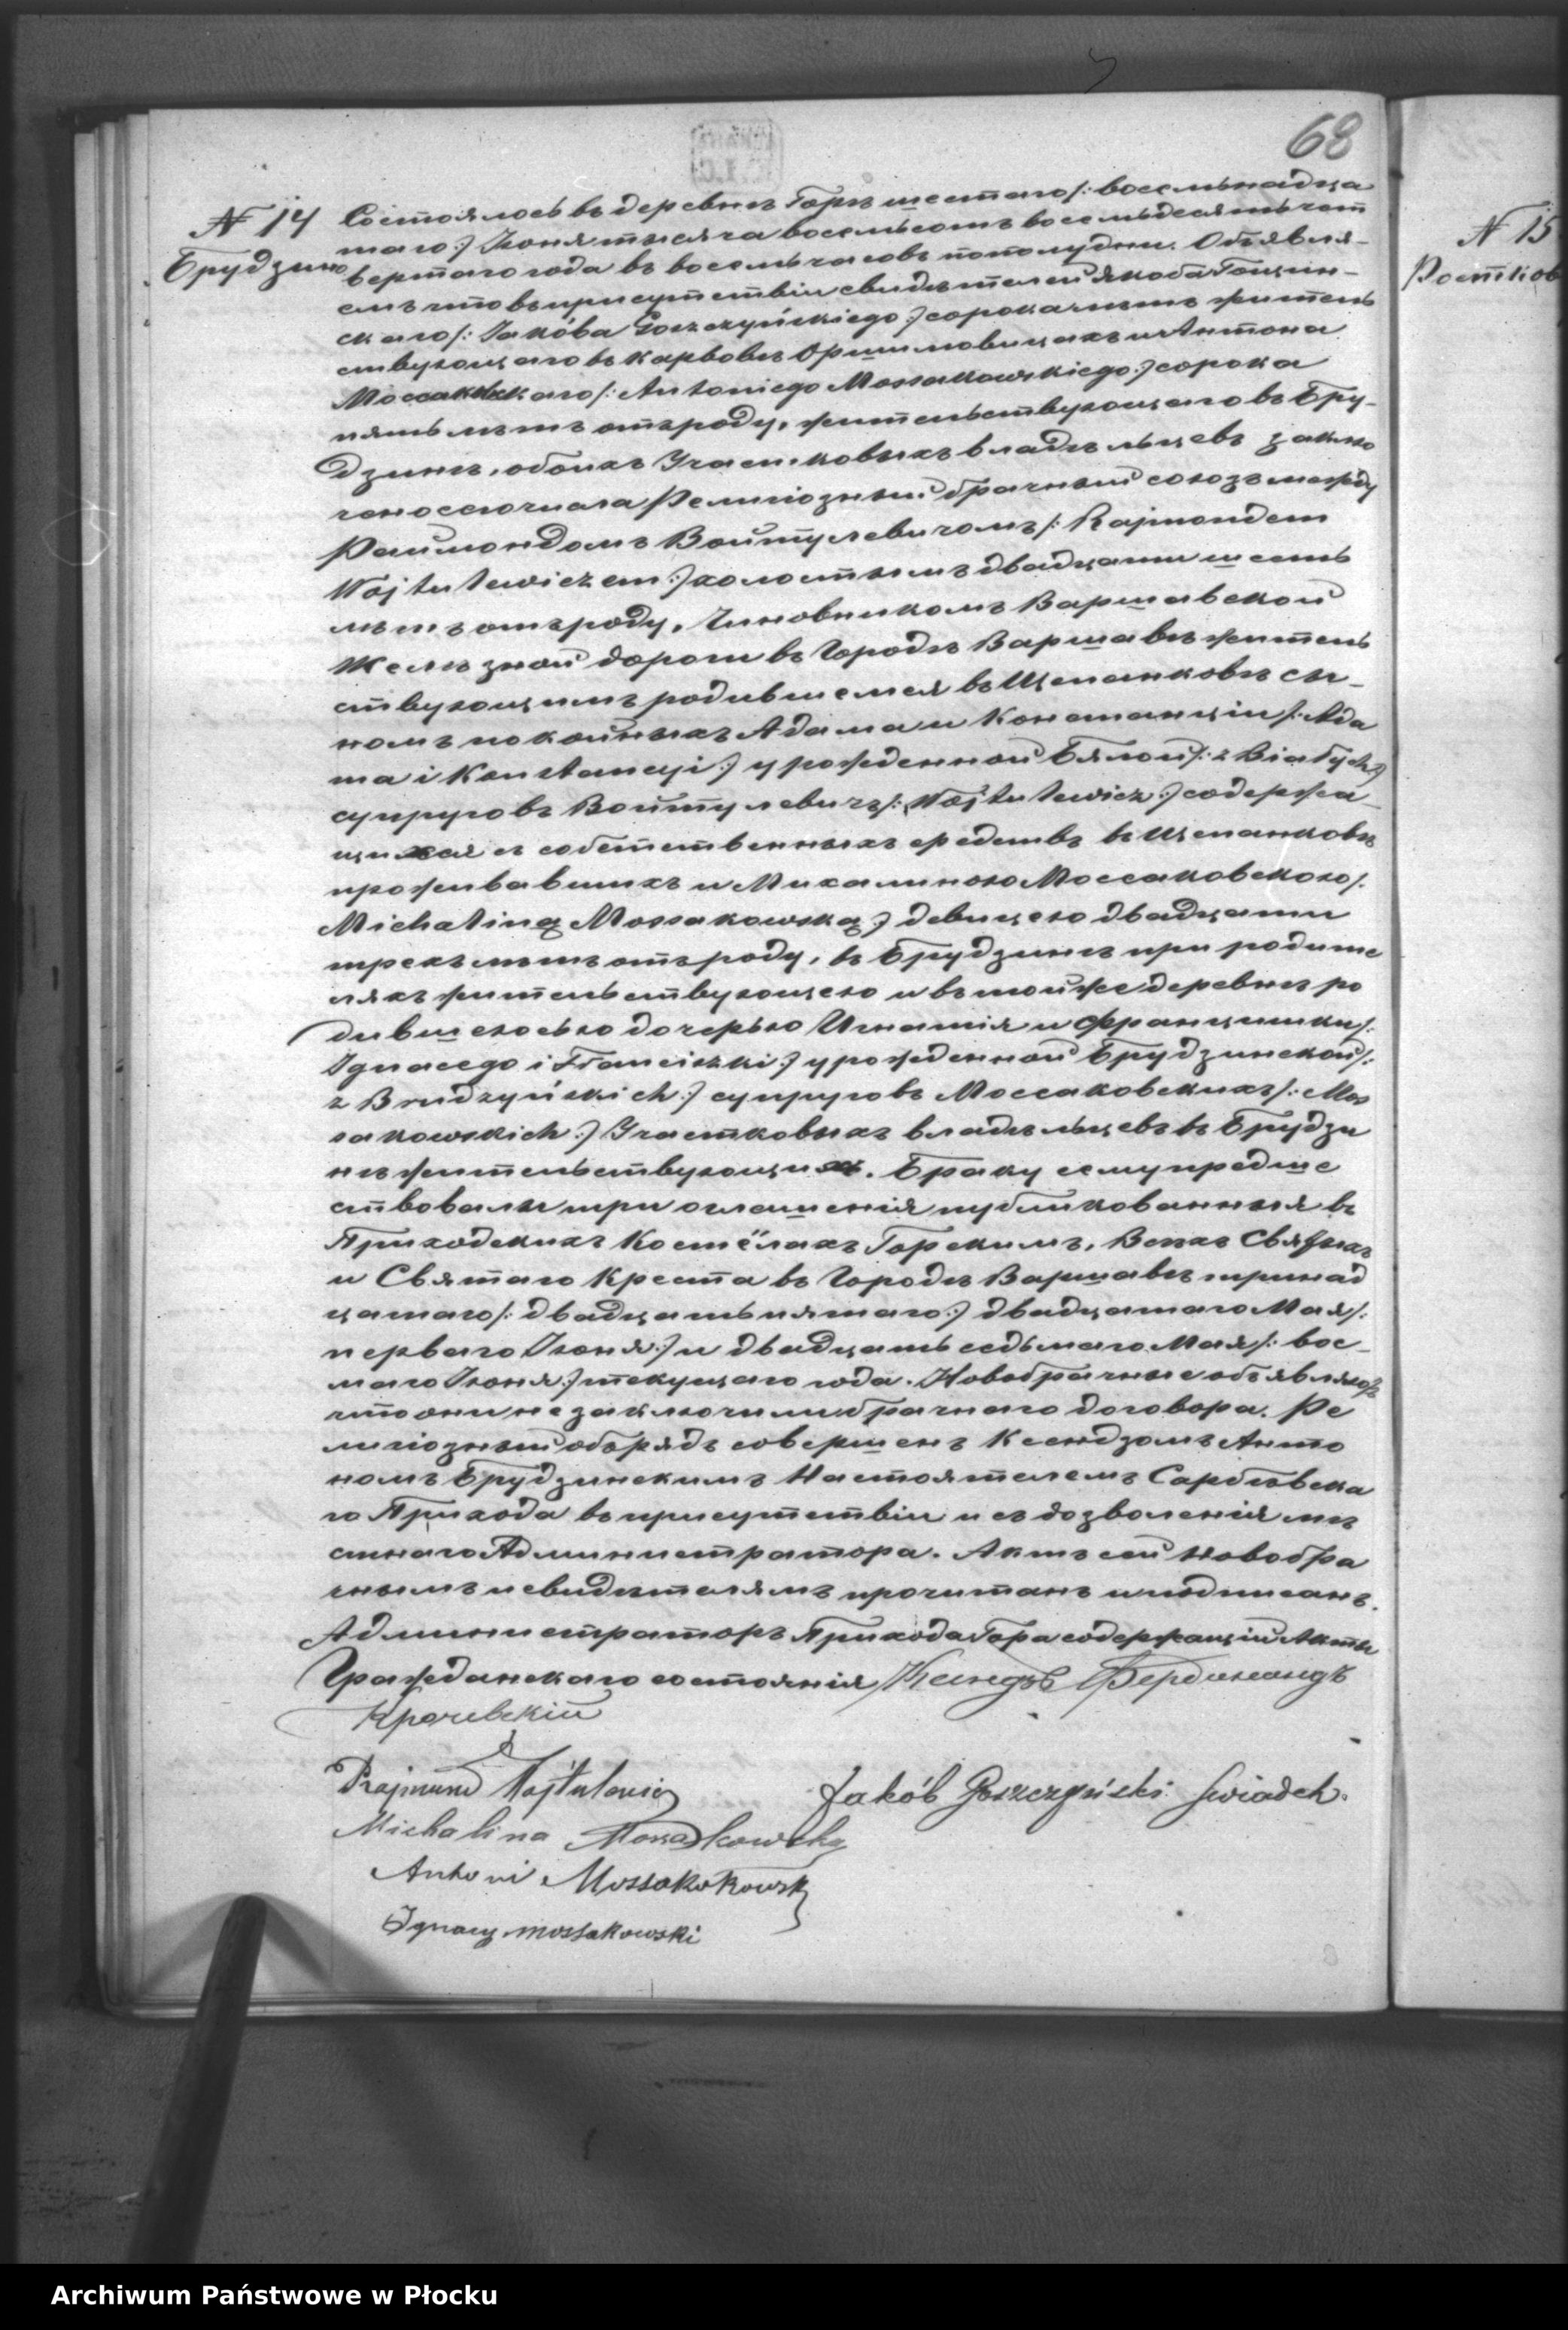 68
№ 14
Брудзино
Состоялось въ деревнѣ Горѣ шестаго /: восемьнадца
таго :/ Іюня тысяча восемьсотъ восемьдесятъ чет
вертаго года въ восемь часовъ пополудни. Объявля-
емъ что въ присутствіи свидѣтелей Якоба Гощин-
скаго /: Jakóba Goszczyńskiego :/ сорока лѣтъ житель
ствующаго въ Карвовѣ Оршимовицахъ и Антона
Моссаковскаго /: Antoniego Mossakowskiego :/ сорока
пять лѣтъ отъ роду, жительствующаго въ Бру-
дзинѣ, обоихъ Участковыхъ владѣльцевъ заклю
чено сего числа Религіозный брачный союзъ между
Раймондомъ Войтулевичомъ /: Rajmondem
Wojtulewiczem :/ холостымъ двадцати шесть
лѣтъ отъ роду, Чиновникомъ Варшавской
Желѣзной дороги въ Городѣ Варшавѣ житель
ствующимъ родившемся въ Щепанковѣ сы-
номъ покойныхъ Адама и Констанціи /: Ada
ma i Konstancyi :/ урожденной Бялой /: z Białych :/
супруговъ Войтулевичъ /: Wojtulewicz :/ содержа
щихся съ собственныхъ средствъ въ Щепанковѣ
проживавшихъ и Михалиною Моссаковскою /:
Michaliną Mossakowską :/ девицею двадцати
трехъ лѣтъ отъ роду, въ Брудзинѣ при родите
ляхъ жительствующею и въ той же деревнѣ ро
дившеюсью дочерью Игнатія и Францишки /:
Ignacego i Franciszki :/ урожденной Брудзинской /:
z Brudzyńskich :/ супруговъ Моссаковскихъ /: Mos
sakowskich :/ Участковыхъ владѣльцевъ въ Брудзи
нѣ жительствующихъ. Браку сему предше
ствовали три оглашенія публикованныя въ
Приходскихъ Костёлахъ Горскимъ, Всѣхъ Святыхъ
и Святаго Креста въ Городѣ Варшавѣ тринад
цатаго /: двадцать пятаго :/ двадцатаго Мая /:
перваго Іюня :/ и двадцать седьмаго Мая /: вос-
маго Іюня :/ текущаго года. Новобрачные объявляютъ
что они не заключили брачнаго договора. Ре
лигіозный обрядъ совершенъ Ксендзомъ Анто
номъ Брудзинскимъ Настоятелемъ Сарбѣвска
го Прихода въ присутствіи и съ дозволенія мѣ
стнаго Администратора. Актъ сей Новобра
чнымъ и свидѣтелямъ прочитанъ и подписанъ.
Администраторъ Прихода Гора содержащій Акты
Гражданскаго состоянія Ксендзъ Фердинандъ
Крачевскій
Rajmund Wojtulewicz
Jakób Goszczyński świadek.
Michalina Mossakowska
Antoni Mossakokowski
Ignacy Mossakowski
№ 15
Archiwum Państwowe w Płocku